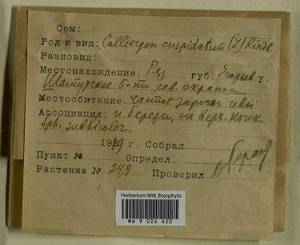 Сем:
Род и вид: Calliergon cuspidatum (L) Kindb.
Разновид:
Местонахождение: Ряз губ. Егорьев у.
Шатурское б-то сев. окраина
Местообитание: частая заросль
Ассоциация: и березы, на верх. кочк
Sph. subbicolor.
19 г. Собрал
Пункт № Определ.
Растение № 248 Проверил
Herbarium MW, Bryophyta
MW 9 026 620